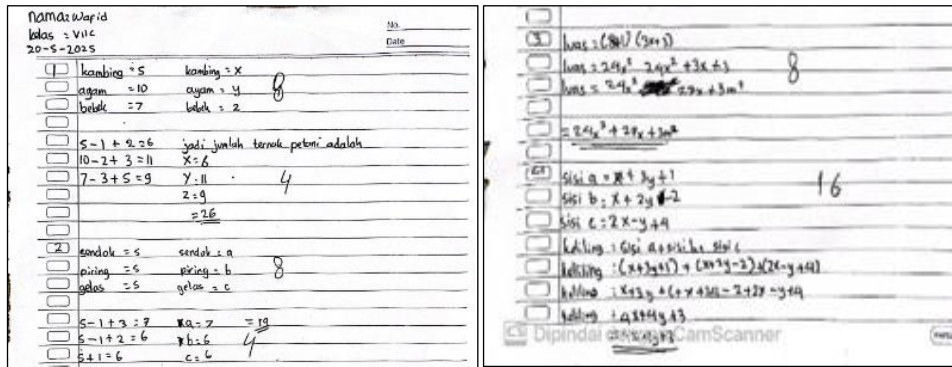 nama: Wafid
kelas : VIIC
20-5-2025
No.
Date
1 kambing = 5 kambing = x
ayam = 10 ayam = y
bebek = 7 bebek = z
8
5-1+2=6 jadi jumlah ternak petani adalah
10-2+3=11 x=6
7-3+5=9 y=11
4
z=9
=26
2 sendok = 5 sendok = a
piring = 5 piring = b
8
gelas = 5 gelas = c
5-1+3=7 a=7 =19
5-1+2=6 b=6
4
5+1=6 c=6
3 luas = (3x+3)
luas = 24x² 24x² +3x+3
8
luas = 24x² 27x+3m²
=24x²+27x+3m²
sisi a = x+3y+1
16
sisi b = x+2y-2
sisi c = 2x-y+4
keliling : sisi a+sisi b+ sisi c
keliling : (x+3y+1) + (x+2y-2)+(2x-y+4)
keliling : x+3y+1+x+2y-2+2x-y+4
keliling : 4x+4y+3
Dipindai dengan CamScanner